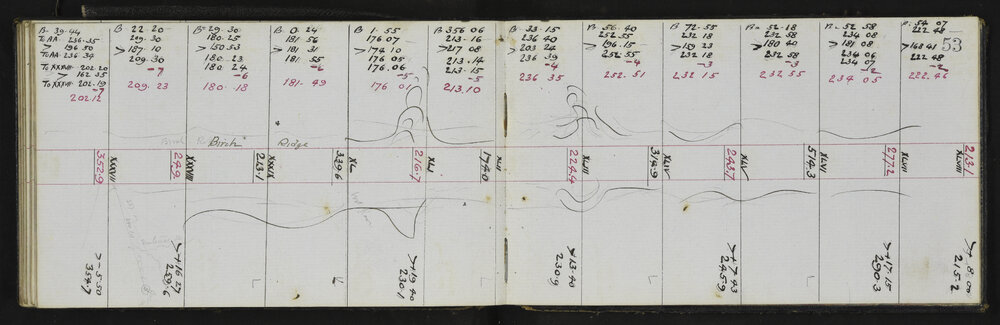 B- 39.44
To AA. 236.35
> 196 50
To AA 236 34
To XXXVII. 202.20
> 162 35
To XXXVII. 202.19
-7
202.12
B 22 20
209.30
> 187.10
209.30
-7
209.23
B= 29.30
180.25
> 150 53
180.23
180 24
-6
180.18
B 0.24
181 56
> 181 31
181 55
-6
181.49
B 1.55
176 07
> 174 10
176 05
176.06
-5
176 01
B 356 06
213.16
> 217 08
213.14
213.15
-5
213.10
B 33.15
236 40
> 203 24
236 39
-4
236 35
B- 56.40
252.55
> 196.15
252.55
-4
252.51
B 72-55
232 18
> 159 23
232 18
-3
232 15
B= 52.18
232 58
> 180 40
232.58
-3
232 55
B- 52 58
234 08
> 181 08
234 06
234 07
-2
234 05
B: 54 07
222.48
> 168 41
222 48
-2
222.46
53
Birch Ridge
352.9
XXXVII
249
XXXVIII
213.1
XXXIX
339.6
XL
216.7
XLI
174.0
XLII
224.4
XLIII
314.9
XLIV
243.7
XLV
514.3
XLVI
277.2
XLVII
213.1
XLVIII
> - 5.50
354.7
> +16 27
259.6
L
L
> +19 40
230.1
L
> +13.40
230.9
L
> +7 43
245.9
L
> +17.15
290.3
> + 8.00
215.2